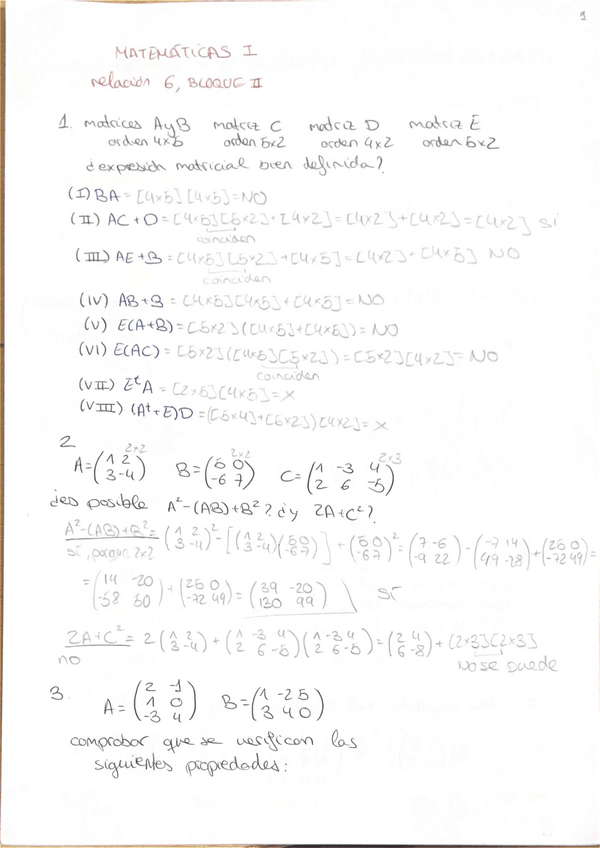 1
MATEMÁTICAS I
relación 6, BLOQUE II
1. matrices A y B matriz C matriz D matriz E
orden 4x5 orden 5x2 orden 4x2 orden 5x2
¿expresión matricial bien definida?
(I) BA = [4x5][4x5] = NO
(II) AC + D = [4x5][5x2] + [4x2] = [4x2] + [4x2] = [4x2] SÍ
coinciden
(III) AE + B = [4x5][5x2] + [4x5] = [4x2] + [4x5] NO
coinciden
(IV) AB + B = [4x5][4x5] + [4x5] = NO
(V) E(A+B) = [5x2]([4x5] + [4x5]) = NO
(VI) E(AC) = [5x2]([4x5][5x2]) = [5x2][4x2] = NO
coinciden
(VII) EᵗA = [2x5][4x5] = X
(VIII) (Aᵗ+E)D = ([5x4] + [5x2])[4x2] = X
2
2x2 2x2 2x3
A = (1 2 B = (5 0 C = (1 -3 4
3 -4) -6 7) 2 6 -5)
¿es posible A² - (AB) + B²? ¿y 2A + C²?
A² - (AB) + B² = (1 2 / 3 -4)² - [(1 2 / 3 -4)(5 0 / -6 7)] + (5 0 / -6 7)² = (7 -6 / -9 22) - (-7 14 / 49 -28) + (25 0 / -72 49) =
sí, porque 2x2
= (14 -20 / -58 50) + (25 0 / -72 49) = (39 -20 / 130 99) SÍ
2A + C² = 2 (1 2 / 3 -4) + (1 -3 4 / 2 6 -5)(1 -3 4 / 2 6 -5) = (2 4 / 6 -8) + [2x3][2x3]
no No se puede
3.
A = (2 -1 B = (1 -2 5
1 0 3 4 0)
-3 4)
comprobar que se verifican las
siguientes propiedades: